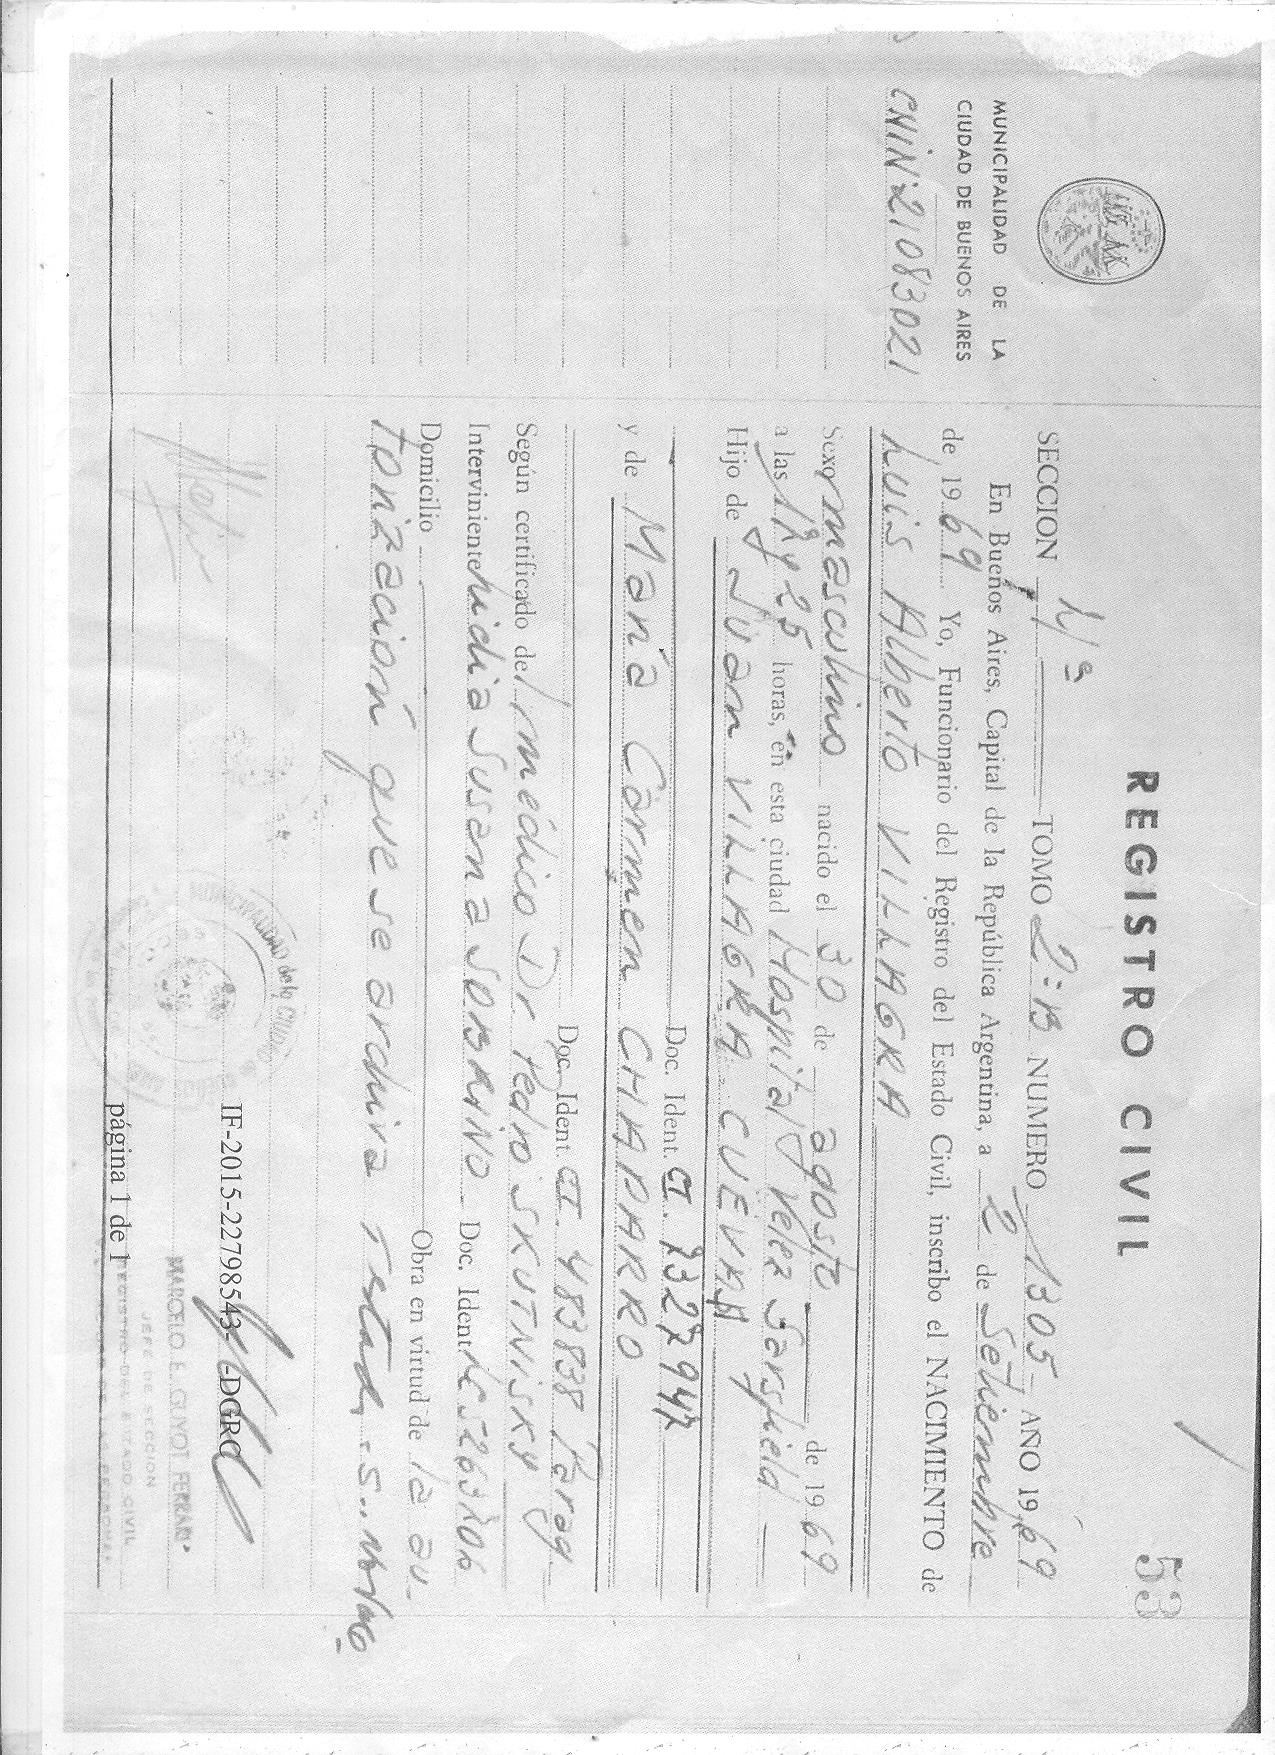 53
REGISTRO CIVIL
MUNICIPALIDAD DE LA
CIUDAD DE BUENOS AIRES
CNIN: 21083021
SECCION 4ª TOMO 2-B NUMERO 1305 AÑO 1969
En Buenos Aires, Capital de la República Argentina, a 2 de Setiembre
de 1969 Yo, Funcionario del Registro del Estado Civil, inscribo el NACIMIENTO de
Luis Alberto VILLAGRA
Sexo masculino nacido el 30 de agosto de 1969
a las 17 y 25 horas, en esta ciudad Hospital Velez Sarsfield
Hijo de Juan VILLAGRA CUEVAS
Doc. Ident. CI. 7327947
y de María Carmen CHAPARRO
Doc. Ident. CI. 483838 Parag
Según certificado del médico Dr Pedro SKUTNISKY
Interviniente Lidia Susana SOBRINO Doc. Ident. LC 5263706
Domicilio Obra en virtud de la au-
torización que se archiva
MUNICIPALIDAD de la CIUDAD
IF-2015-22798543- -DGRC
MARCELO E. GUYOT FERRARI
JEFE DE SECCION
REGISTRO DEL ESTADO CIVIL
página 1 de 1